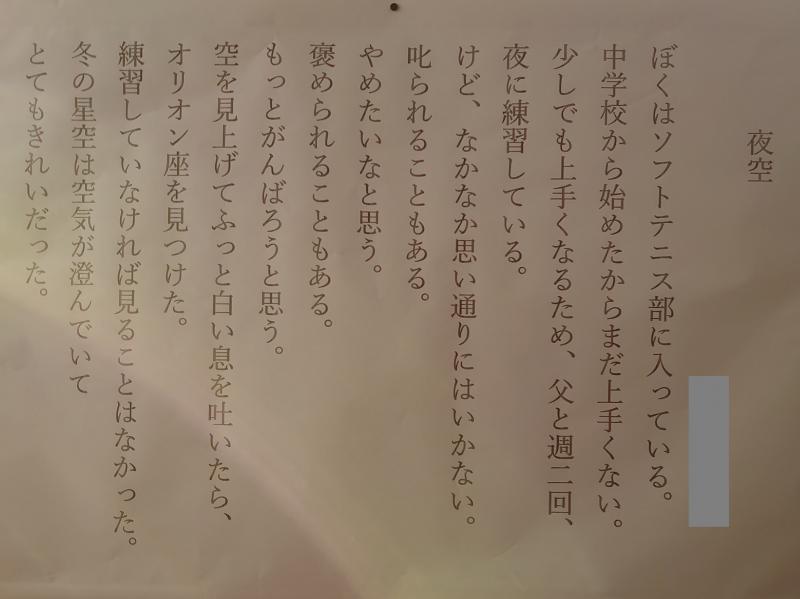 夜空
ぼくはソフトテニス部に入っている。
中学校から始めたからまだ上手くない。
少しでも上手くなるため、父と週二回、
夜に練習している。
けど、なかなか思い通りにはいかない。
叱られることもある。
やめたいなと思う。
褒められることもある。
もっとがんばろうと思う。
空を見上げてふっと白い息を吐いたら、
オリオン座を見つけた。
練習していなければ見ることはなかった。
冬の星空は空気が澄んでいて
とてもきれいだった。